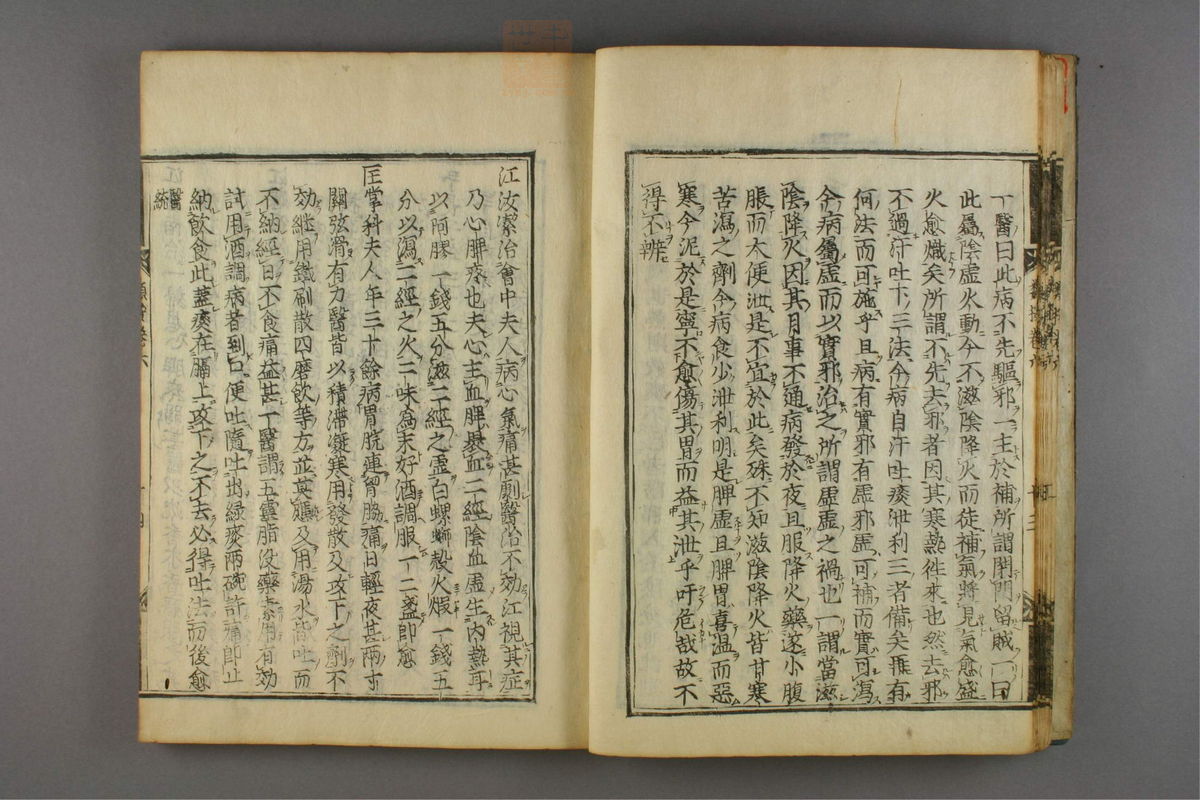 一醫曰此病不先驅邪一主於補所謂関門留賊一曰
此屬陰虛火動今不滋陰降火而徒補氣將見氣愈盛
火愈熾矣所謂不先去邪者因其寒熱徃來也然去邪
不過汗吐下三法今病自汗吐痰泄利三者備矣再有
何法而可施乎且病有實邪有虛邪虛可補而實可瀉
今病屬虛而以實邪治之所謂虛虛之禍也一謂當滋
陰降火因其月事不通病發於夜且服降火藥遂小腹
脹而大便泄是不宜於此矣殊不知滋陰降火皆甘寒
苦瀉之劑今病食少泄利明是脾虛且脾胃喜温而惡
寒今泥於是寧不愈傷其胃而益其泄乎吁危哉故不
得不辨
江汝潔治會中夫人病心氣痛甚劇醫治不効江視其症
乃心脾疼也夫心主血脾裹血二經陰血虛生内熱耳
以阿膠一錢五分滋二經之虛白螺螄殼火煆一錢五
分以瀉二經之火二味為末好酒調服一二盞即愈
匡掌科夫人年三十餘病胃脘連胷脇痛日輕夜甚兩寸
關弦滑有力醫皆以積滯凝寒用發散及攻下之劑不
効継用鐵刷散四磨飲等方並莫應及用湯水皆吐而
不納經日不食痛益甚一醫謂五靈脂没藥素用有効
試用酒調病者到口便吐隨吐出緑痰兩碗許痛即止
納飲食此蓋痰在膈上攻下之不去必得吐法而後愈
醫統